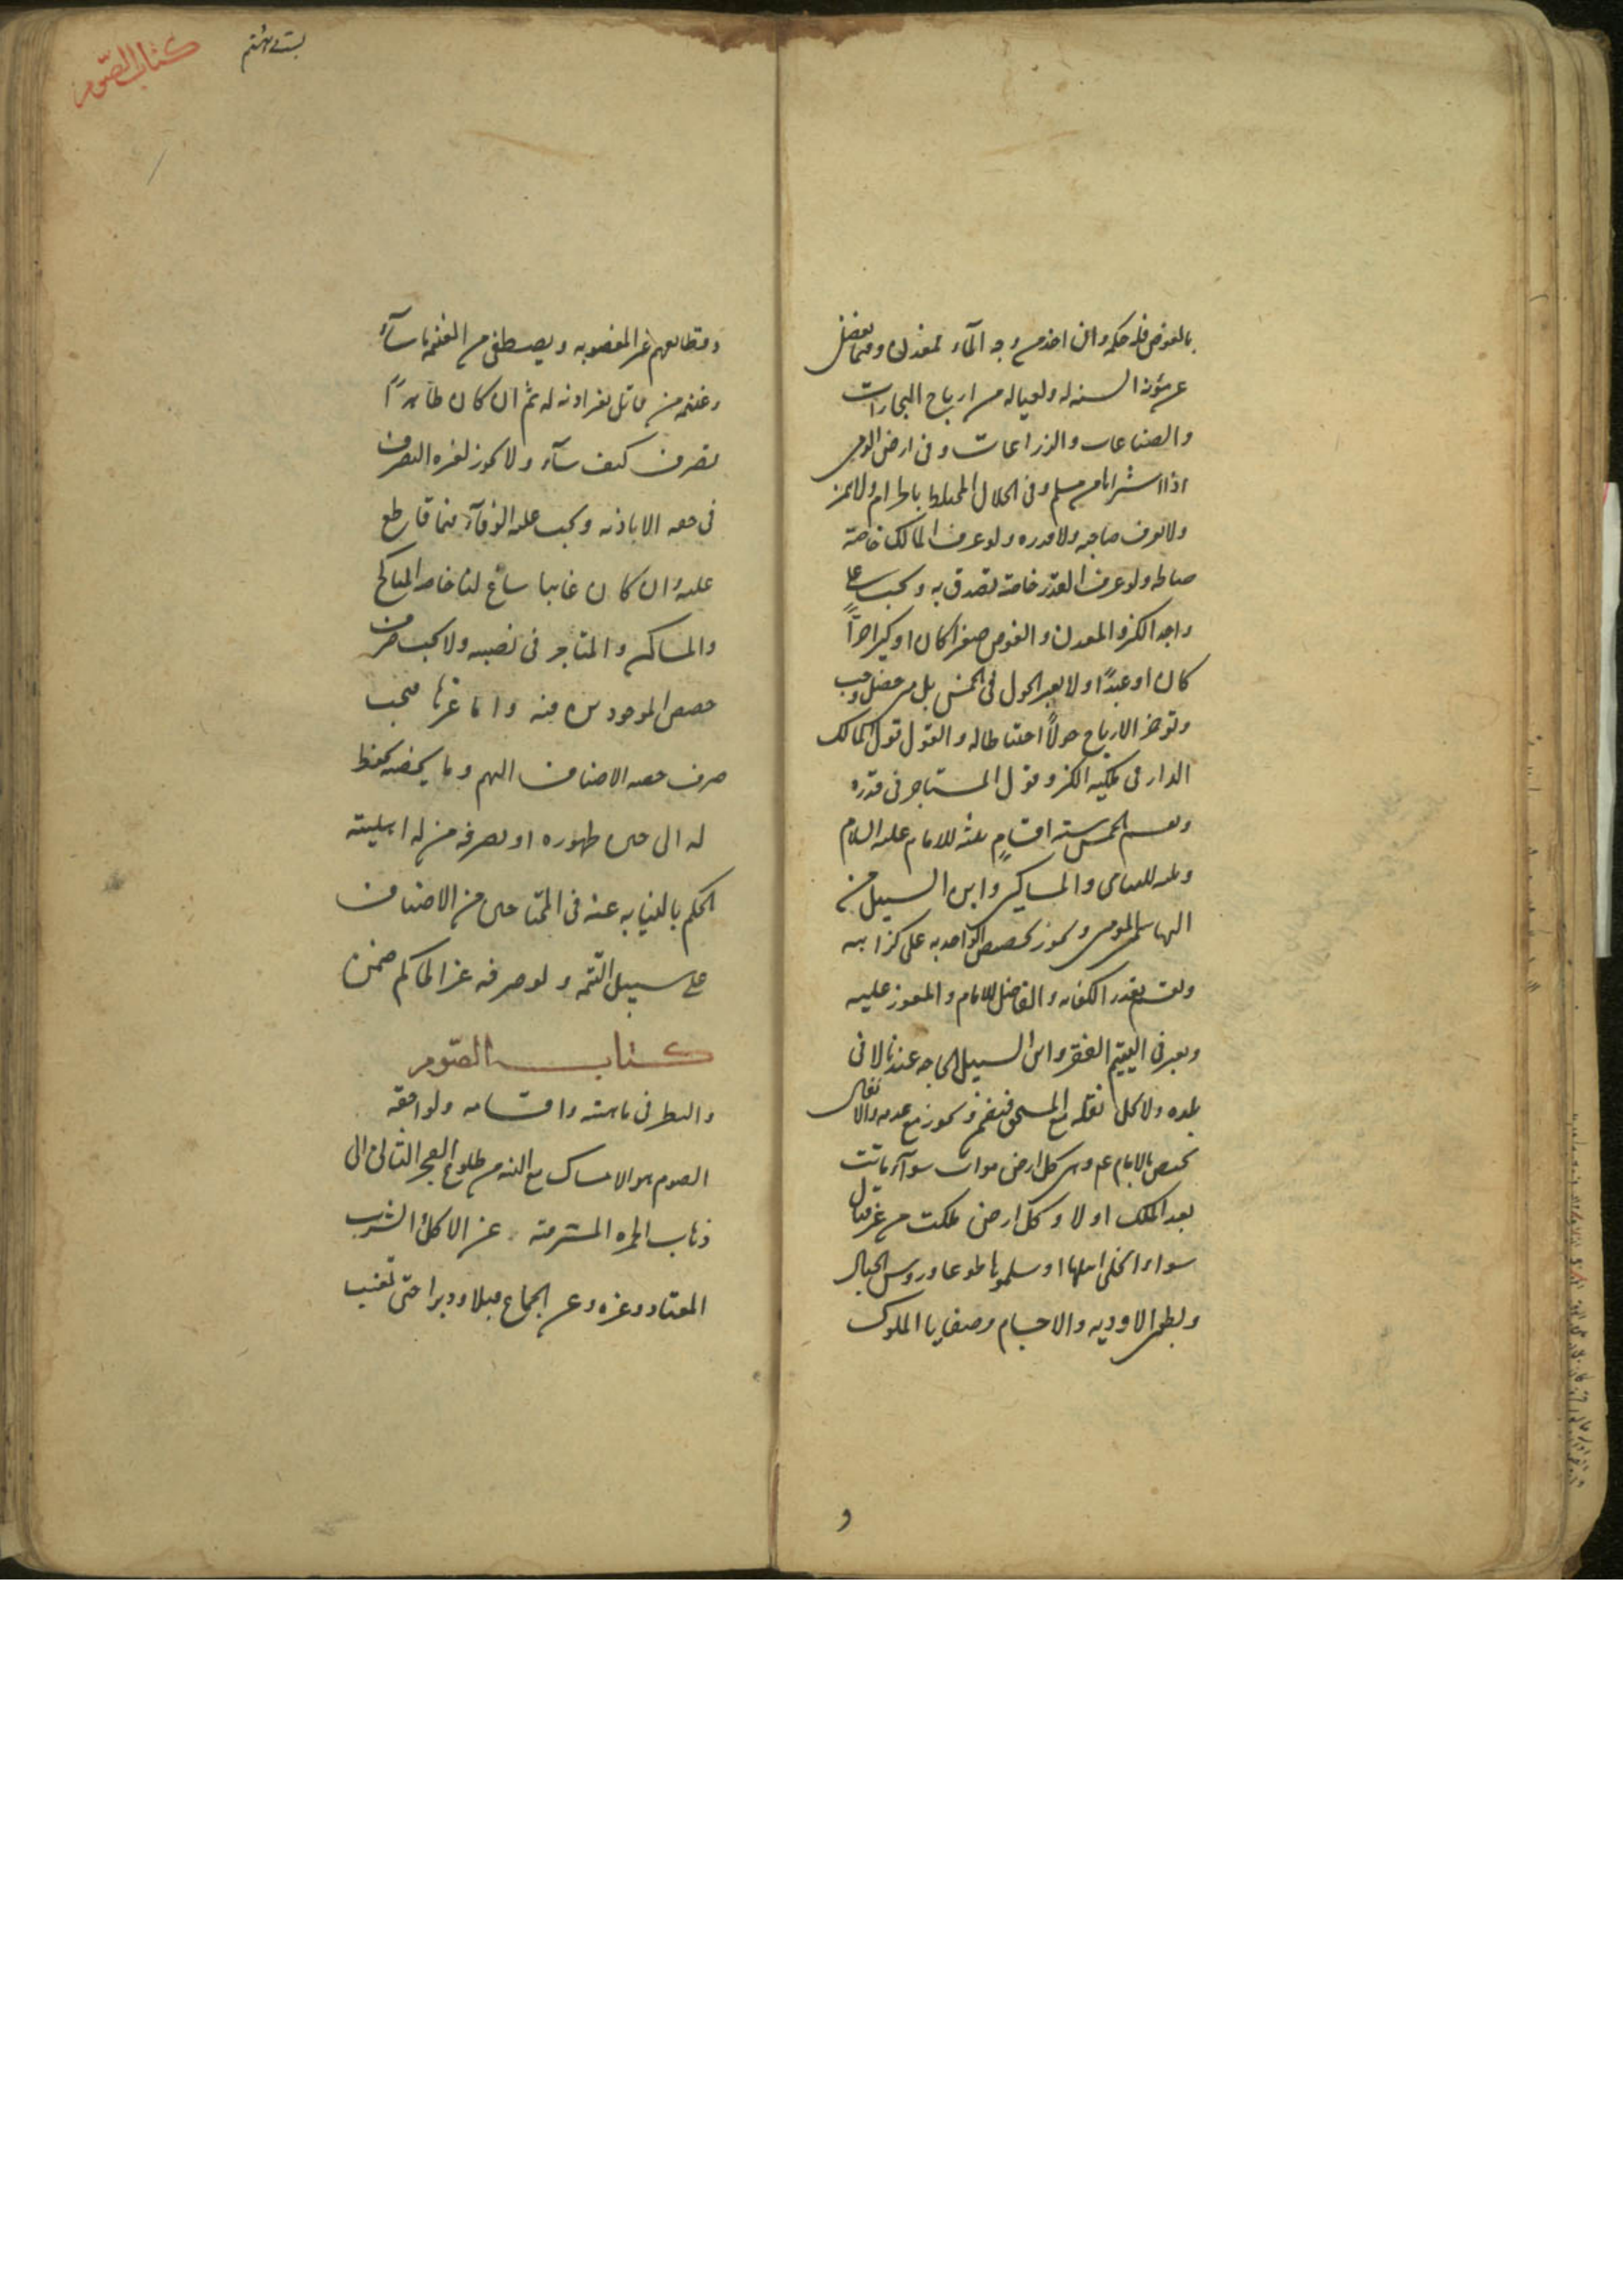 بالغوص فله حكمه وان اخذ من وجه الماء فمعدن وفيما يفضل
عن مؤنة السنة له ولعياله من ارباح التجارات
والصناعات والزراعات وفي ارض الذمي
اذا اشتراها من مسلم وفي الحلال المختلط بالحرام ولا يتميز
ولا يعرف صاحبه ولا قدره ولو عرف المالك خاصة
صالحه ولو عرف القدر خاصة تصدق به ويجب على
واجد الكنز والمعدن والغوص صغيرا كان او كبيرا حرّاً
كان او عبدًا ولا يعتبر الحول في الخمس بل متى حصل وجب
وتؤخر الارباح حولاً احتياطا له والقول قول مالك
الدار في ملكية الكنز وقول المستاجر في قدره
ويقسم الخمس ستة اقسامٍ ثلثة للامام عليه السلام
وثلثة لليتامى والمساكين وابن السبيل من
الهاشميين المؤمنين ويجوز تخصيص الواحد به على كراهية
ويقسم بقدر الكفاية والفاضل للامام والمعوز عليه
ويعتبر في اليتيم الفقر وابن السبيل الحاجة عندنا لا في
بلده ولا يحل نقله مع المستحق فيضمن ويجوز مع عدمه والانفال
تختص بالامام عم وهي كل ارض موات سواء ماتت
بعد الملك او لا وكل ارض ملكت من غير قتال
سواء انجلى اهلها او سلموها طوعا ورؤس الجبال
وبطون الاودية والاجام وصفايا الملوك
و
بيست وهشتم
كتاب الصّوم
وقطائعهم غير المغصوبة ويصطفي من الغنيمة ما شآء
وغنيمة من قاتل بغير اذنه له ثم ان كان ظاهرًا
تصرف كيف شآء ولا يجوز لغيره التصرف
في حقه الا باذنه ويجب عليه الوفآء فيما قاطع
عليه وان كان غايبا ساغ لنا خاصة المناكح
والمساكن والمتاجر في نصيبه ولا يجب صرف
حصص الموجودين منه واما غيرها فيجب
صرف حصة الاصناف اليهم وما يخصه يحفظ
له الى حين ظهوره او يصرفه من له اهلية
الحكم بالنيابة عنه في المحتاجين من الاصناف
على سبيل التتمة ولو صرفه غير الحاكم ضمن
كتاب الصّوم
والنظر في ماهيته واقسامه ولواحقه
الصوم هو الامساك مع النية من طلوع الفجر الثاني الى
ذهاب الحمرة المشرقية عن الاكل والشرب
المعتاد وغيره وعن الجماع قبلا ودبرا حتى تغيب